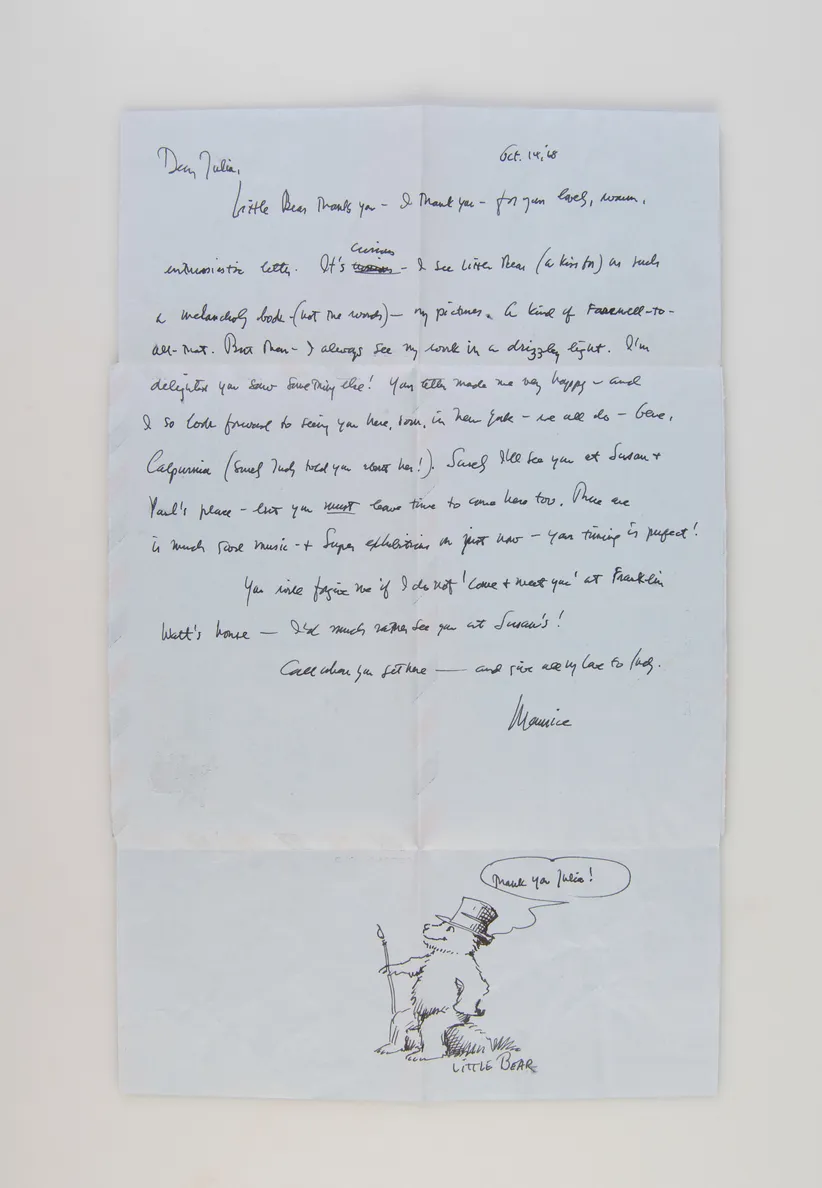 Oct. 14, '68
Dear Julia,
Little Bear Thanks you - I Thank you - for your lovely, warm,
enthusiastic letter. It's curious - I see Little Bear (a kiss for) as such
a melancholy book - (not the words) - my pictures. A kind of Farewell-to-
all-that. But then - I always see my work in a drizzly light. I'm
delighted you saw something else! Your letter made me very happy - and
I so look forward to seeing you here, soon, in New York - we all do - Gene,
Calpurnia (surely Judy told you about her!). Surely I'll see you at Susan +
Paul's place - but you must leave time to come here too. There
is much good music - + super exhibitions on just now - your timing is perfect!
You will forgive me if I do not 'come + meet you' at Franklin
Watt's house — I'd much rather see you at Susan's!
Call when you get here — and give all my love to Judy.
Maurice
Thank you Julia!
LITTLE BEAR